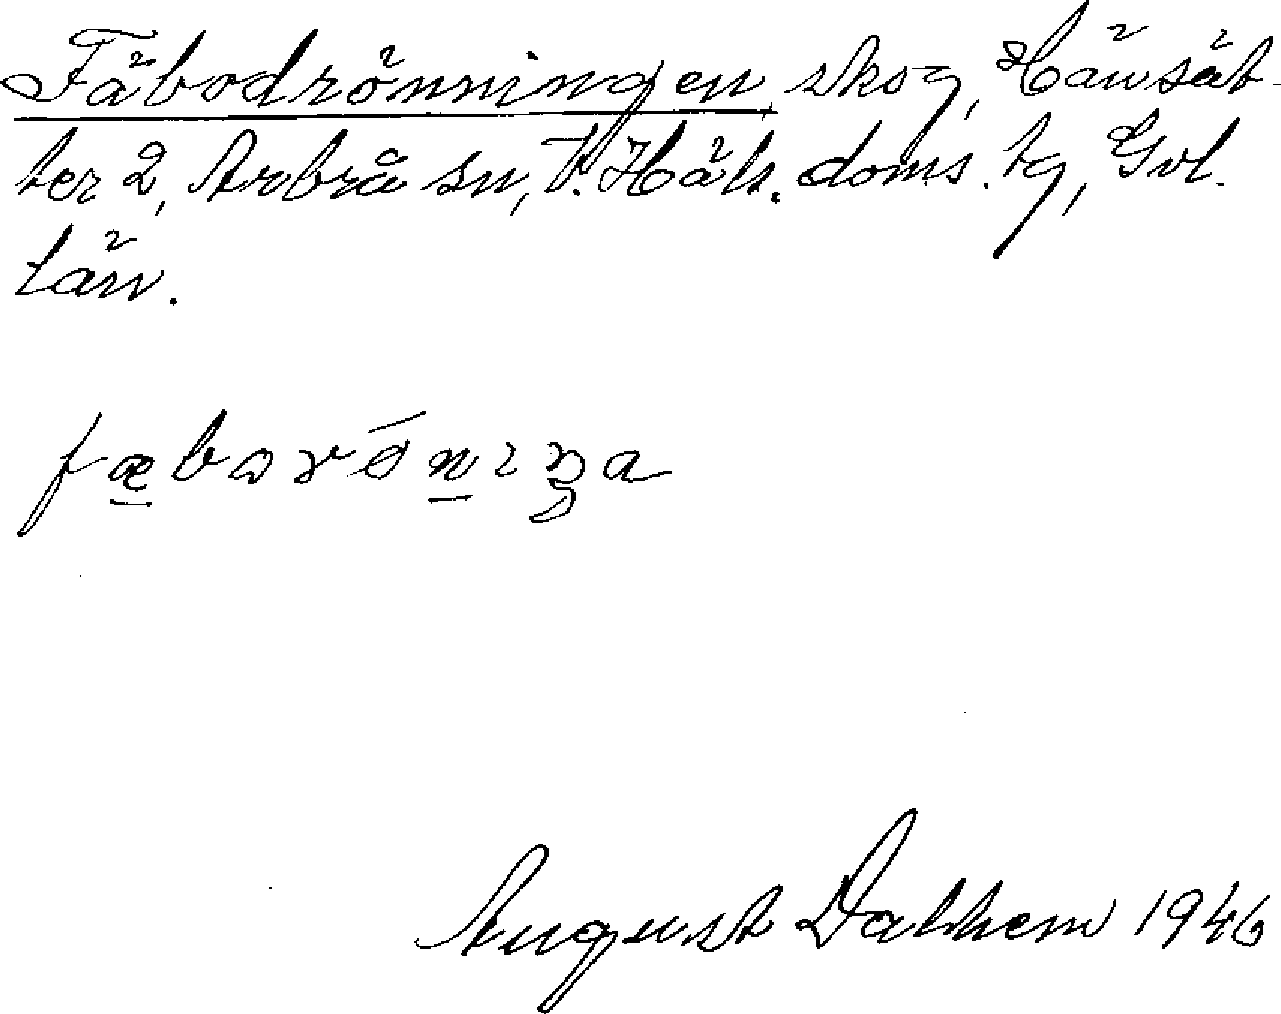 Fäbodrönningen, skog, Hänsät-
ter 2, Arbrå sn, V. Häls. doms. tg, Gvl.
län.
fæbɷrǿnıŋa
August Dalhem 1946